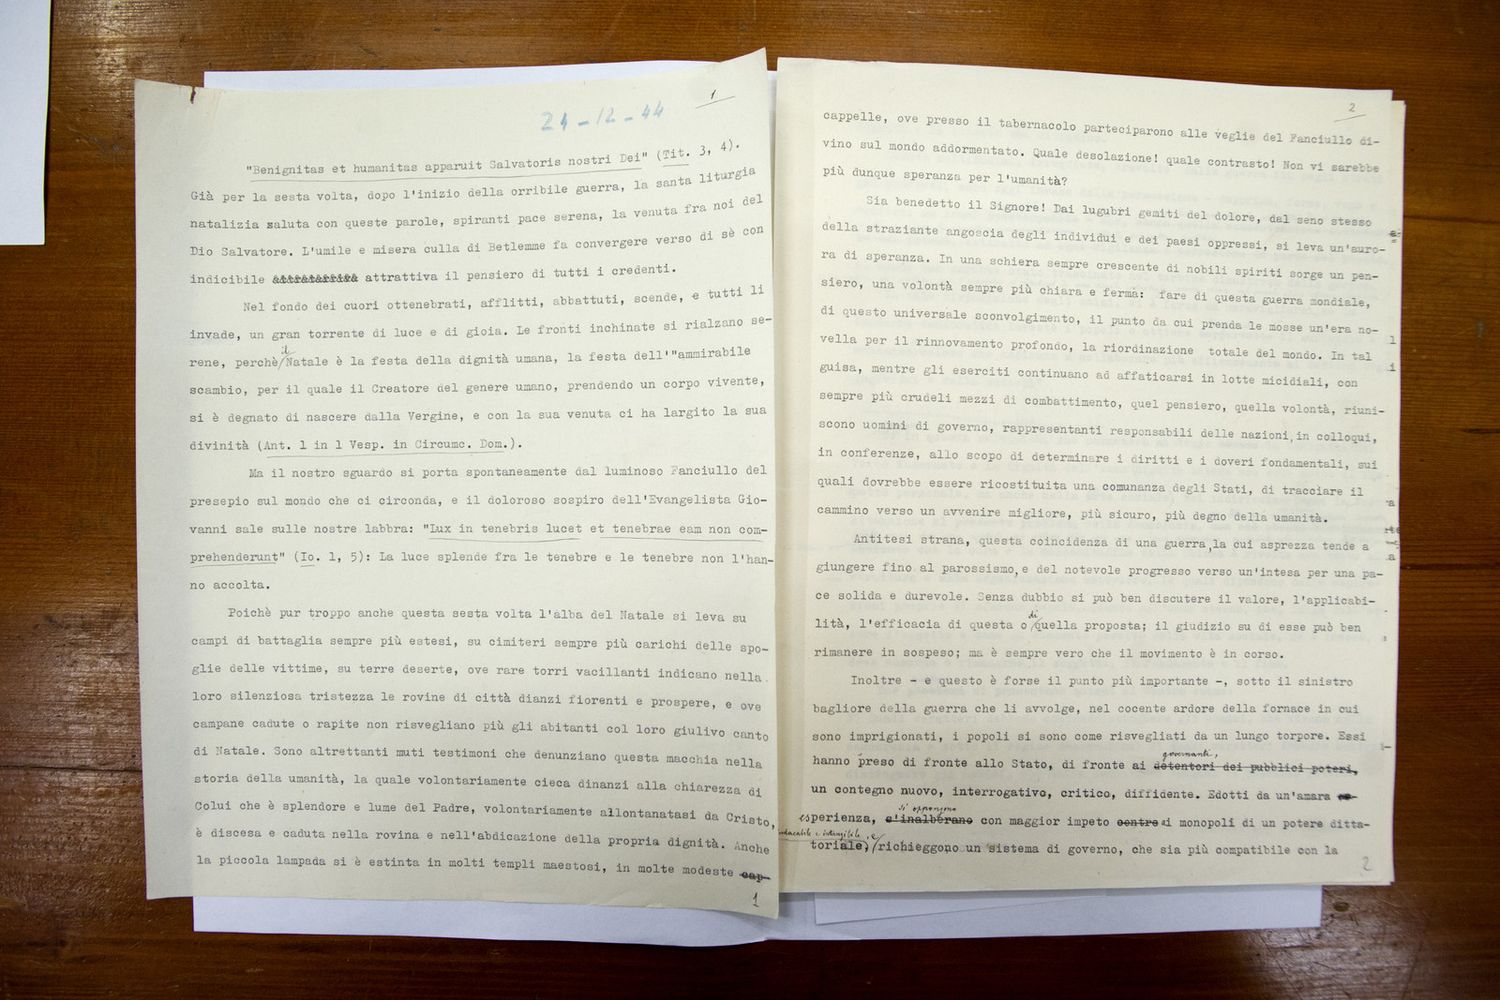 1
24-12-44
"Benignitas et humanitas apparuit Salvatoris nostri Dei" (Tit. 3, 4).
Già per la sesta volta, dopo l'inizio della orribile guerra, la santa liturgia
natalizia saluta con queste parole, spiranti pace serena, la venuta fra noi del
Dio Salvatore. L'umile e misera culla di Betlemme fa convergere verso di sè con
indicibile attrattiva il pensiero di tutti i credenti.
Nel fondo dei cuori ottenebrati, afflitti, abbattuti, scende, e tutti li
invade, un gran torrente di luce e di gioia. Le fronti inchinate si rialzano se-
il
rene, perchè Natale è la festa della dignità umana, la festa dell'"ammirabile
scambio, per il quale il Creatore del genere umano, prendendo un corpo vivente,
si è degnato di nascere dalla Vergine, e con la sua venuta ci ha largito la sua
divinità (Ant. 1 in 1 Vesp. in Circumc. Dom.).
Ma il nostro sguardo si porta spontaneamente dal luminoso Fanciullo del
presepio sul mondo che ci circonda, e il doloroso sospiro dell'Evangelista Gio-
vanni sale sulle nostre labbra: "Lux in tenebris lucet et tenebrae eam non com-
prehenderunt" (Io. 1, 5): La luce splende fra le tenebre e le tenebre non l'han-
no accolta.
Poichè pur troppo anche questa sesta volta l'alba del Natale si leva su
campi di battaglia sempre più estesi, su cimiteri sempre più carichi delle spo-
glie delle vittime, su terre deserte, ove rare torri vacillanti indicano nella
loro silenziosa tristezza le rovine di città dianzi fiorenti e prospere, e ove
campane cadute o rapite non risvegliano più gli abitanti col loro giulivo canto
di Natale. Sono altrettanti muti testimoni che denunziano questa macchia nella
storia della umanità, la quale volontariamente cieca dinanzi alla chiarezza di
Colui che è splendore e lume del Padre, volontariamente allontanatasi da Cristo,
è discesa e caduta nella rovina e nell'abdicazione della propria dignità. Anche
la piccola lampada si è estinta in molti templi maestosi, in molte modeste cap-
1
2
cappelle, ove presso il tabernacolo parteciparono alle veglie del Fanciullo di-
vino sul mondo addormentato. Quale desolazione! quale contrasto! Non vi sarebbe
più dunque speranza per l'umanità?
Sia benedetto il Signore! Dai lugubri gemiti del dolore, dal seno stesso
della straziante angoscia degli individui e dei paesi oppressi, si leva un'auro-
ra di speranza. In una schiera sempre crescente di nobili spiriti sorge un pen-
siero, una volontà sempre più chiara e ferma: fare di questa guerra mondiale,
di questo universale sconvolgimento, il punto da cui prenda le mosse un'era no-
vella per il rinnovamento profondo, la riordinazione totale del mondo. In tal
guisa, mentre gli eserciti continuano ad affaticarsi in lotte micidiali, con
sempre più crudeli mezzi di combattimento, quel pensiero, quella volontà, riuni-
scono uomini di governo, rappresentanti responsabili delle nazioni, in colloqui,
in conferenze, allo scopo di determinare i diritti e i doveri fondamentali, sui
quali dovrebbe essere ricostituita una comunanza degli Stati, di tracciare il
cammino verso un avvenire migliore, più sicuro, più degno della umanità.
Antitesi strana, questa coincidenza di una guerra, la cui asprezza tende a
giungere fino al parossismo, e del notevole progresso verso un'intesa per una pa-
ce solida e durevole. Senza dubbio si può ben discutere il valore, l'applicabi-
di
lità, l'efficacia di questa o quella proposta; il giudizio su di esse può ben
rimanere in sospeso; ma è sempre vero che il movimento è in corso.
Inoltre - e questo è forse il punto più importante -, sotto il sinistro
bagliore della guerra che li avvolge, nel cocente ardore della fornace in cui
sono imprigionati, i popoli si sono come risvegliati da un lungo torpore. Essi
governanti,
hanno preso di fronte allo Stato, di fronte ai detentori dei pubblici poteri,
un contegno nuovo, interrogativo, critico, diffidente. Edotti da un'amara
si oppongono
esperienza, s'inalberano con maggior impeto contro ai monopoli di un potere ditta-
indacabile e intangibile, e
toriale, richieggono un sistema di governo, che sia più compatibile con la
2